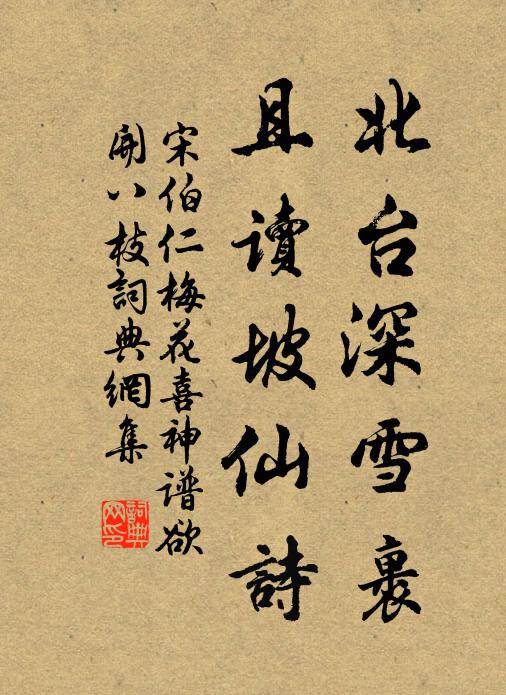 北台深雪裹
且读坡仙詩
宋伯仁梅花喜神谱欲
開八枝詞典網集
詞典
网印